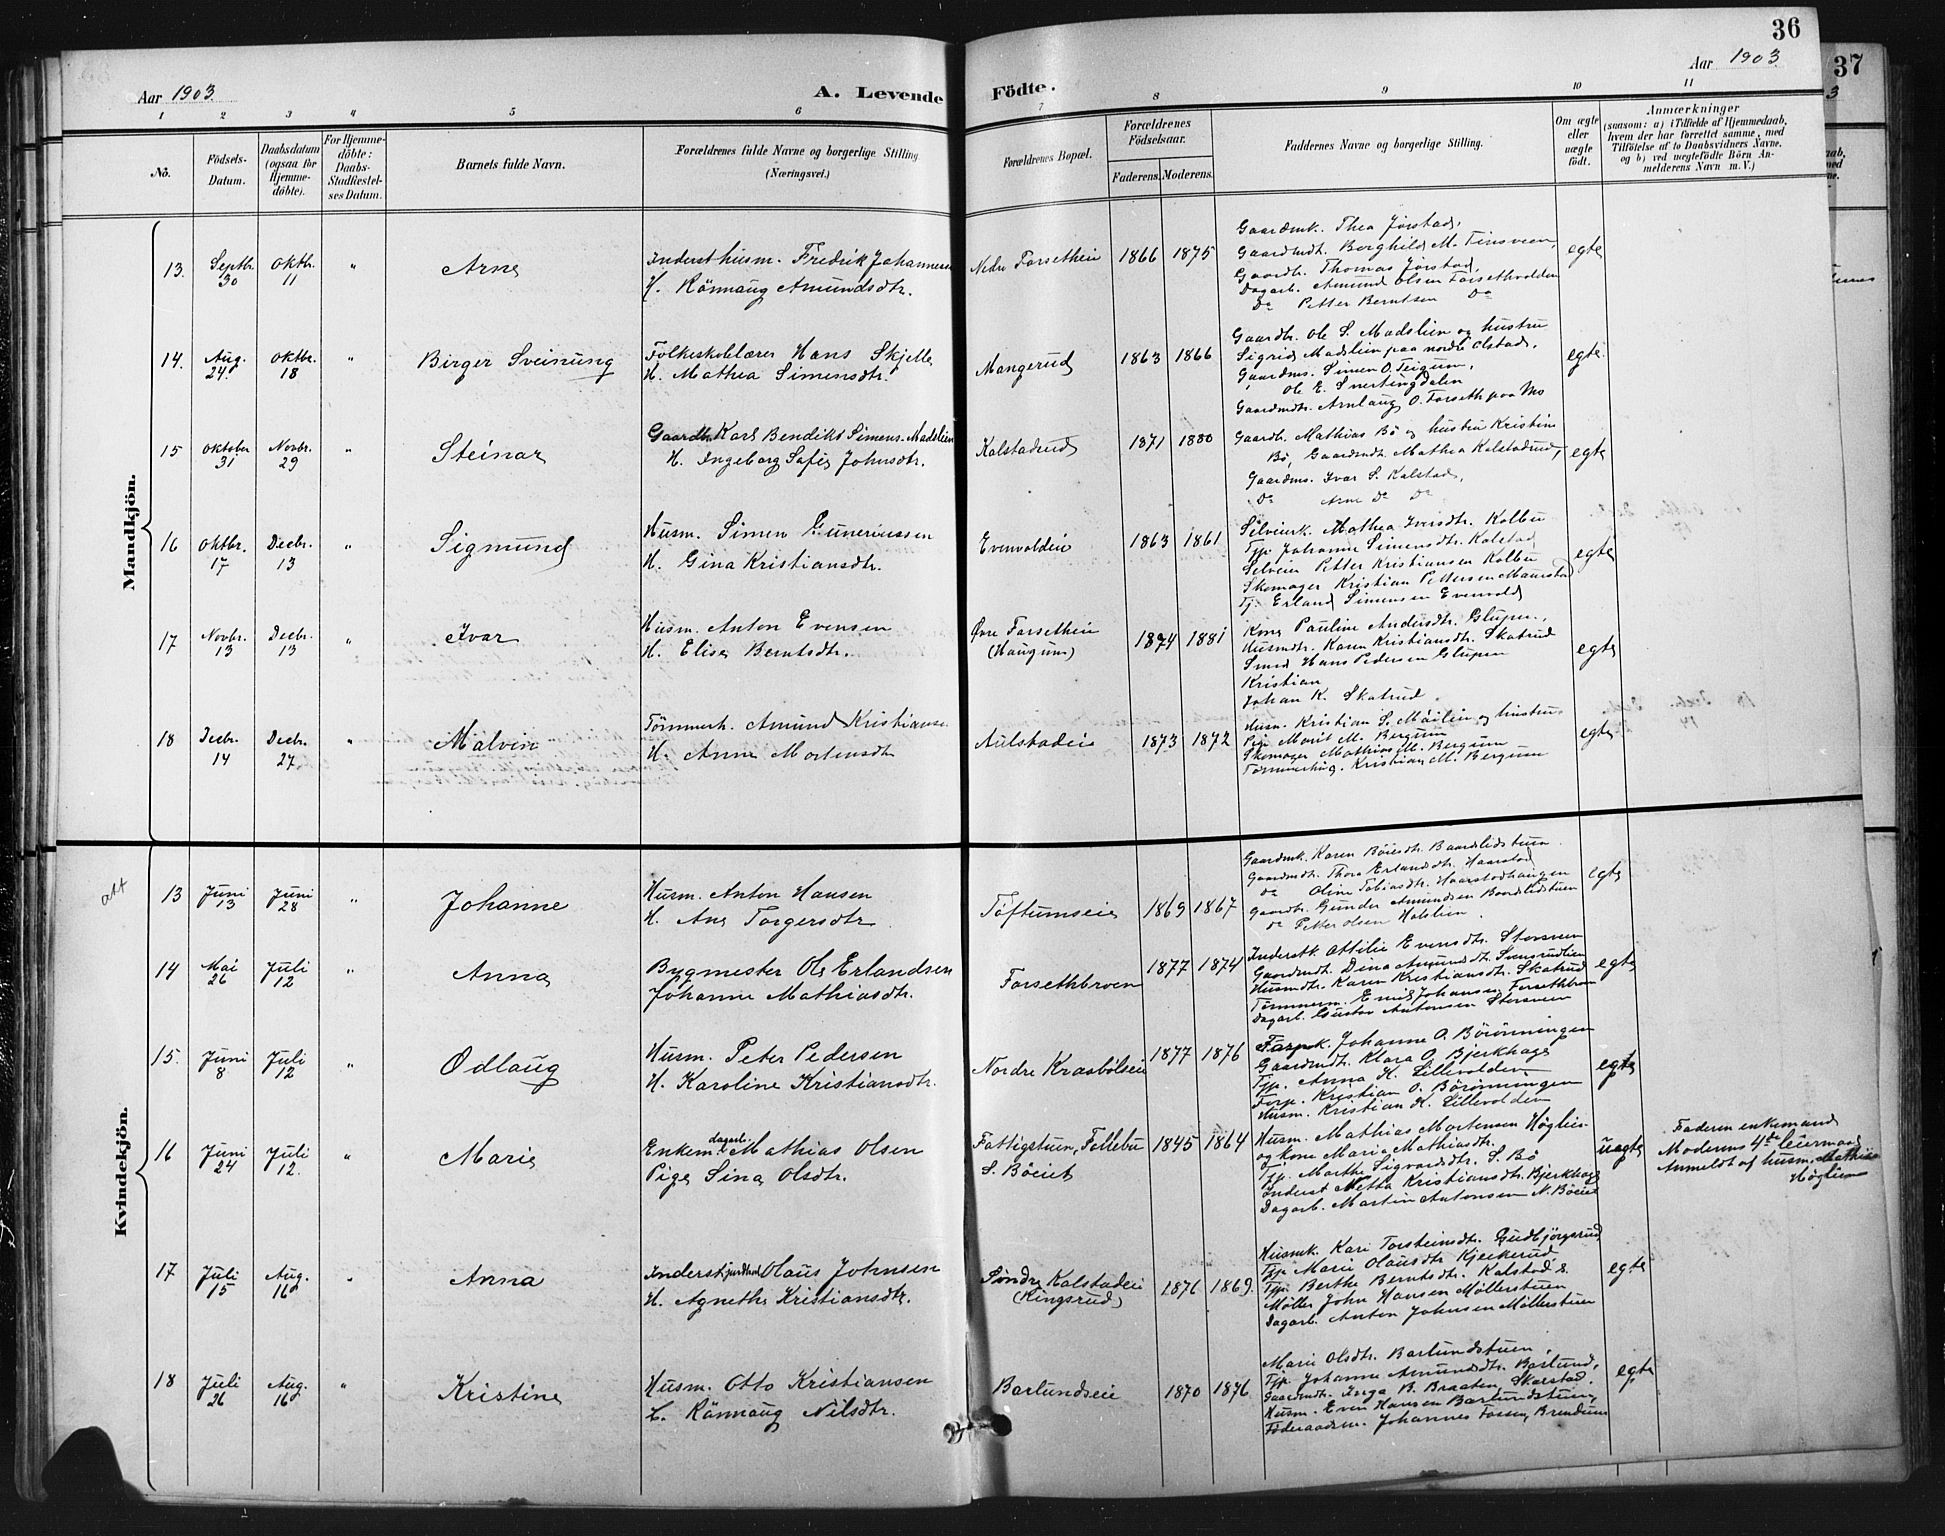 36
37
Aar 1903.
A. Levende Födte.
Aar 1903.
3
1 2 3 4 5 6 7 8 9 10 11
No.
Födsels-Datum.
Daabsdatum (ogsaa for Hjemme-döbte).
For Hjemme-döbte: Daabs-Stadfæstel-ses Datum.
Barnets fulde Navn.
Forældrenes fulde Navne og borgerlige Stilling
(Næringsvei.)
Forældrenes Bopæl.
Forældrenes Födselsaar.
Faderens. Moderens.
Faddernes Navne og borgerlige Stilling.
Om ægte eller uægte födt.
Anmærkninger
(saasom: a) i Tilfælde af Hjemmedaab,
hvem der har forrettet samme, med
Tilföielse af to Daabsvidners Navne.
og b) ved uægtefödte Börn An-
melderens Navn m. V.)
Mandkjön.
13. Septbr. 30 Oktbr. 11 " Arne
Inderst husm. Fredrik Johannesen
H. Rönnaug Amundsdtr.
Nedre Forsetheie 1866 1875
Gaardmk. Thea Jørstad,
Gaardmdt. Borghild M. Tinsveen,
Gaardb. Thomas Jørstad,
Dagarb. Amund Olsen Forsethvolden
Do Petter Berntsen Do
egte
14. Aug. 24. Oktbr. 18 " Birger Sveinung
Folkeskolelærer Hans Skjelle
H. Mathea Simensdtr.
Mangerud 1863 1866
Gaardbr. Ole S. Madslien og hustru
Sigrid Madslien paa nordre Olstad,
Gaardms. Simen O. Teigum,
Ole E. Snertingdalen
Gaardmdtr. Arnlaug O. Forseth paa Mo
egte
15 Oktober 31 Novbr. 29 " Steinar
Gaardb. Karl Bendikt Simens. Madslien
H. Ingeborg Sofie Johnsdtr.
Kalstadrud 1871 1880
Gaardb. Mathias Bö og hustru Kristine
Bö, Gaardmdt. Mathea Kalstadrud,
Gaardms. Ivar S. Kalstad,
Do Arne Do Do
egte
16 Oktbr. 17 Decbr. 13 " Sigmund
Husm. Simen Gunerius­sen
H. Gina Kristiansdtr.
Evenvoldeie 1863 1861
Selveierk. Mathea Iversdtr. Kolbu
Tjp. Johanne Simensdtr. Kalstad
Selveier Petter Kristiansen Kolbu
Skomager Kristian Pettersen Maurstad
Tj. Erland Simensen Evenvold
egte
17 Novbr. 13 Decbr. 13 " Ivar
Husm. Anton Evensen
H. Elise Berntsdtr.
Øvre Forsetheie
(Haugum)
1874 1881
Kone Pauline Andersdtr. Glupen,
Husmdtr. Karen Kristiansdtr. Skatrud
Smed Hans Pedersen Glupen
Kristian
Johan K. Skatrud.
egte
18 Decbr. 14 Decbr. 27 " Malvin
Tömmerh. Amund Kristianse.
H. Anne Mortensdtr
Aulstadeie 1873 1872
Husm. Kristian S. Mæilin og hustru
Pige Marit M. Bergum
Skomager Mathias M. Bergum
Tömmerhug. Kristian M. Bergum
egte
Kvindekjön.
att
13 Juni 13 Juni 28 " Johanne
Husm. Anton Hansen
H. Ane Torgersdtr.
Töftumseie 1869 1867
Gaardmk. Karen Böiesdtr. Baardslidstuen.
Gaardmdt. Thora Erlandsdtr. Haarstad
Do Oline Tobiasdtr. Haarstadhaugen
Gaardbr. Gunder Amundsen Baardslidstuen
Do Petter Olsen Holslien.
egte
14 Mai 26 Juli 12 " Anna
Bygmester Ole Erlandsen
Johanne Mathiasdtr.
Forsethbroen 1877 1874
Inderstk. Ottilie Evensdtr. Storsveen
Gaardmdt. Dina Amundsdt. Svensrudlien
Husmdtr. Karen Kristiansdtr. Skatrud
Tömmerm. Emil Johansen Forsethbroen
Dagarb. Gustav Antonsen Storsveen
egte
15. Juni 8 Juli 12 " Odlaug
Husm. Peter Pedersen
H. Karoline Kristiansdtr.
Nordre Kraabölseie 1877 1876
Forpk. Johanne O. Börönningen
Gaardmdt. Klara O. Bjerkhage
Tjp. Anna K. Lillevolden
Forp. Kristian O. Börönningen
Husm. Kristian K. Lillevolden
egte
16 Juni 24 Juli 12. " Marie
Enkem. dagarb. Mathias Olsen
Pige Sina Olsdtr.
Fattigstuen, Follebu
S. Böeiet
1845 1864
Husm. Mathias Mortensen Höglien
og kone Marie Mathiasdtr.
Tjp. Marthe Sigvardsdtr. S. Bö
Inderst Mette Kristiansdtr. Bjerkhage
Dagarb. Martin Antonsen N. Böeie
uegte
Faderen enkemand
Moderens 4de leiermaal
Anmeldt af husm. Mathias
Høglien
17 Juli 15 Aug. 16 " Anna
Inderst jordbrud Olaus Johnsen
H. Agnethe Kristiansdtr.
Söndre Kalstadeie
(Ringsrud)
1876 1869.
Husmk. Kari Torsteinsdtr. Gudbjörgsrud,
Tjp. Marie Olausdtr. Kjækerud
Tjp. Berthe Berntsdtr. Kalstad s.
Möller John Hansen Möllerstuen
Dagarb. Anton Johnsen Möllerstuen
egte
18 Juli 26 Aug. 16 " Kristine
Husm. Otto Kristiansen
H. Rönnaug Nilsdtr.
Barlundseie 1870 1876
Marie Olsdtr. Barlundstuen,
Tjp. Johanne Amundsdtr. Barlund,
Gaardmdtr. Inga B. Braaten, Skarstad,
Husm. Even Hansen Barlundstuen,
Föderaadsm. Johannes Fossen, Brendum
egte